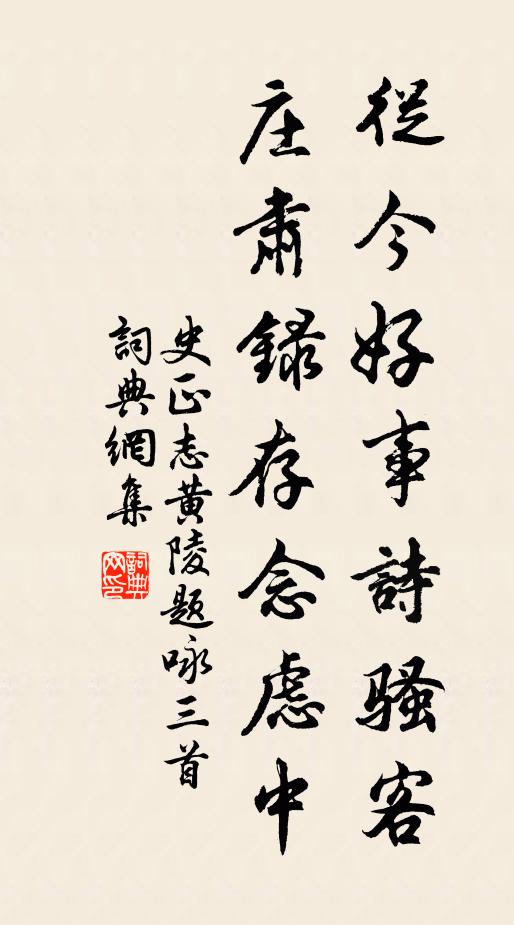 從今好事詩骚客
庄肅録存念慮中
史正志黄陵题咏三首
詞典網集
詞典网印